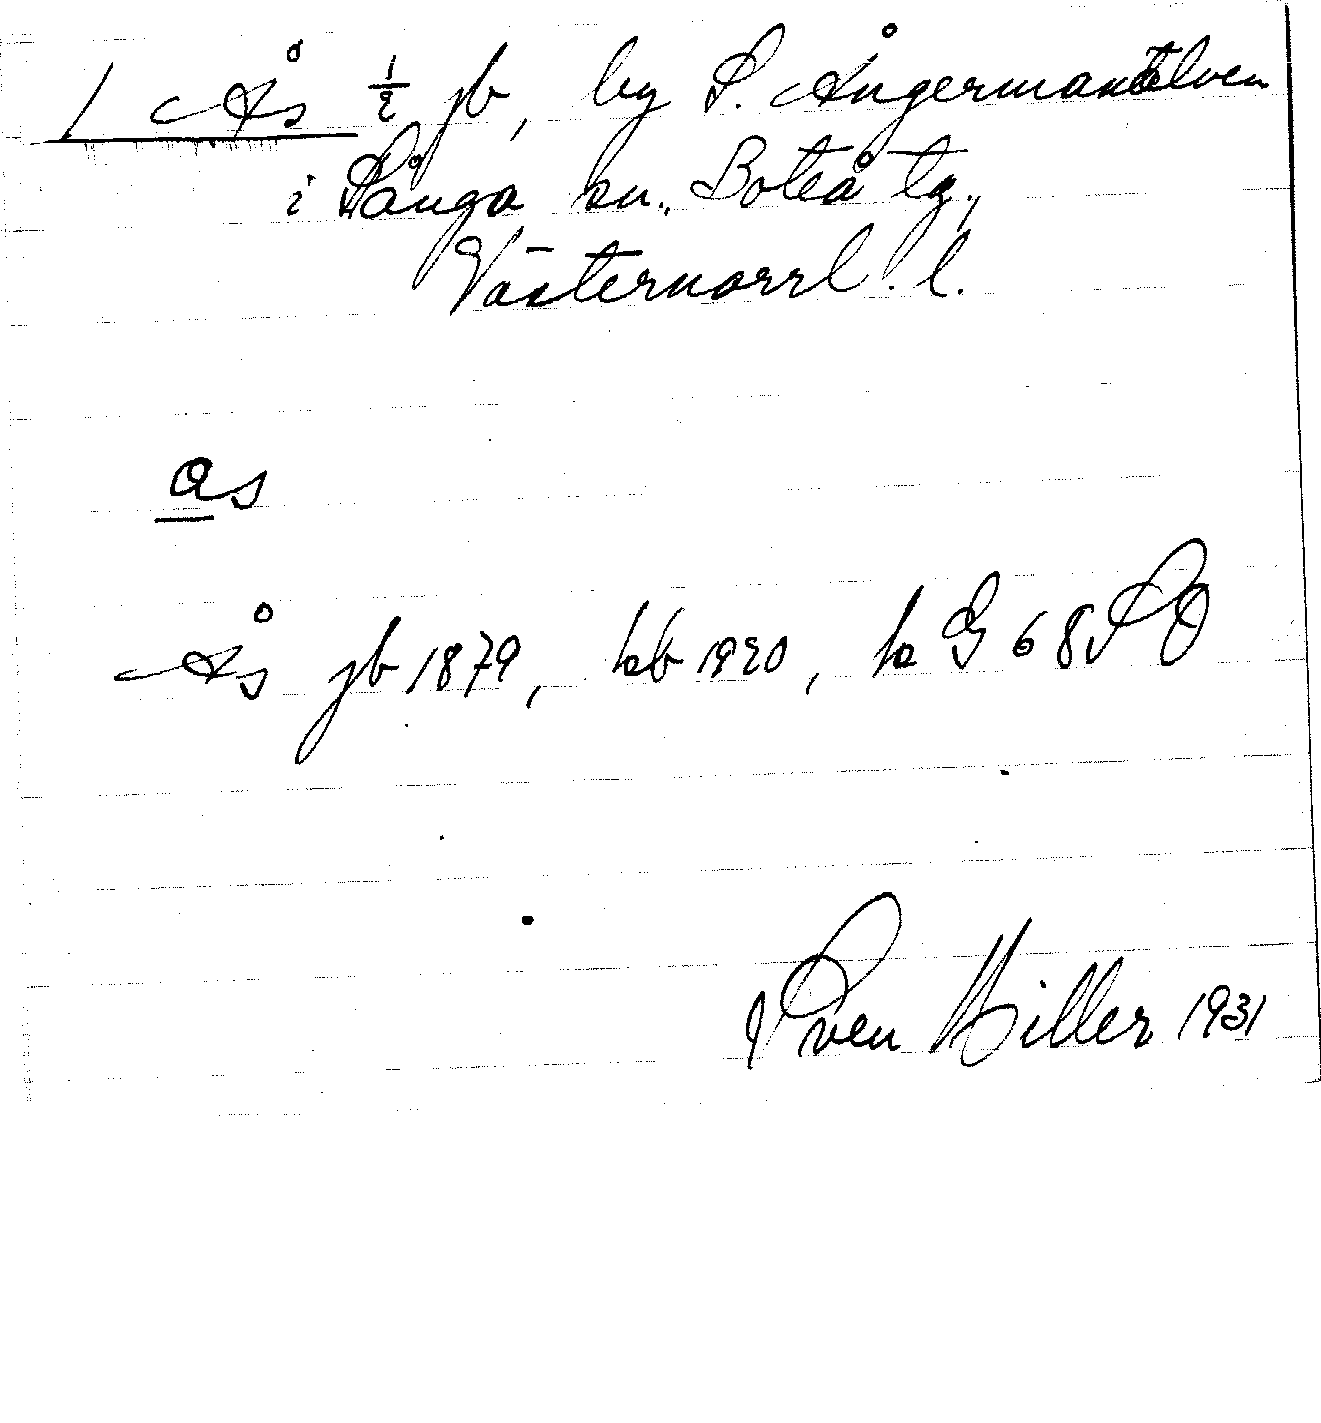 1 Ås ½ jb, by S. Ångermanälven
i Sånga sn., Boteå tg.,
Västernorrl. l.
as
Ås jb 1879, kb 1920, ka G 68 SO
Sven Hiller 1931